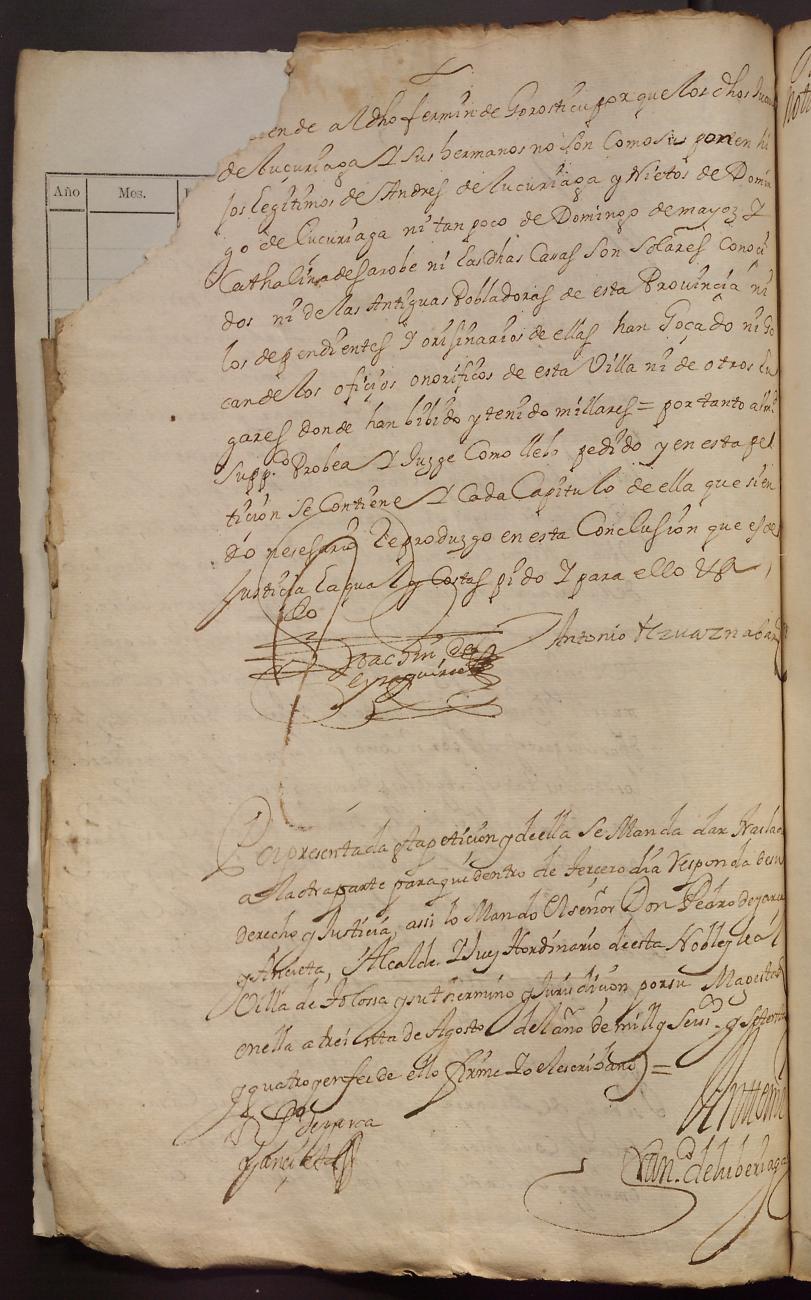 Año Mes.
ende a el dho fermin de Gorosticu porque los dhos Juan
de lucuriaga Y sus hermanos no son Como se ponen hi
jos legitimos de Andres de lucuriaga y Nietos de Domin
go de lucuriaga ni tan poco de Domingo de mayoz Y
Cathalina desarobe ni las dhas Casas son Solares Conoci
dos ni de las Antiguas Pobladoras de esta Provincia ni
los dependientes Y orijinarios de ellas han Goçado ni Go
can de los ofiçios onorificos de esta Villa ni de otros lu
gares donde han bibido y tenido millares = por tanto a Vmd
Suppco Probea Y Juzge Como llebo pedido y en esta pet
tiçion se Contiene Y Cada Capitulo de ella que sien
do nesesario Reproduzgo en esta Conclusion que es de
Justicia la qual y Costas pido Y para ello Vª
Ldo
Joachin de
Eyzaguirre
Antonio Yzuaznabar
Por presentada esta petiçion y de ella se Manda dar traslado
a la otra parte para que dentro de terçero dia responda de su
derecho y Justiçia, assi lo Mando El señor Don Pedro de yarza
y Ançieta, Alcalde Y Juez Hordinario de esta Noble y leal
Villa de Tolossa y su thermino y Jurisdiçion por su Magestad
en ella a treinta de Agosto del año de mill y seiss y setenta
y quatro y en fee de ello firme Yo el escribano =
D P de yarça
y ançieta
Ante mi
Franco de luberiaga